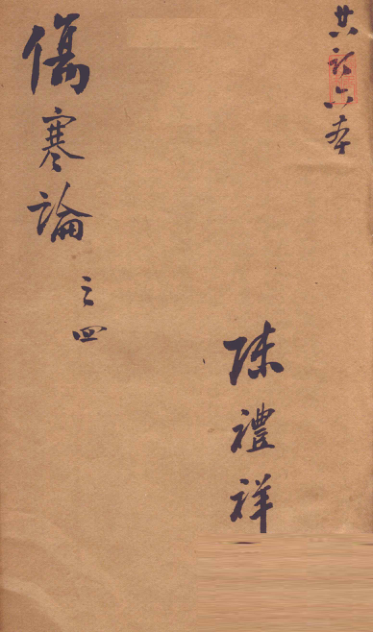 共計六本
陳禮祥
傷寒論之四